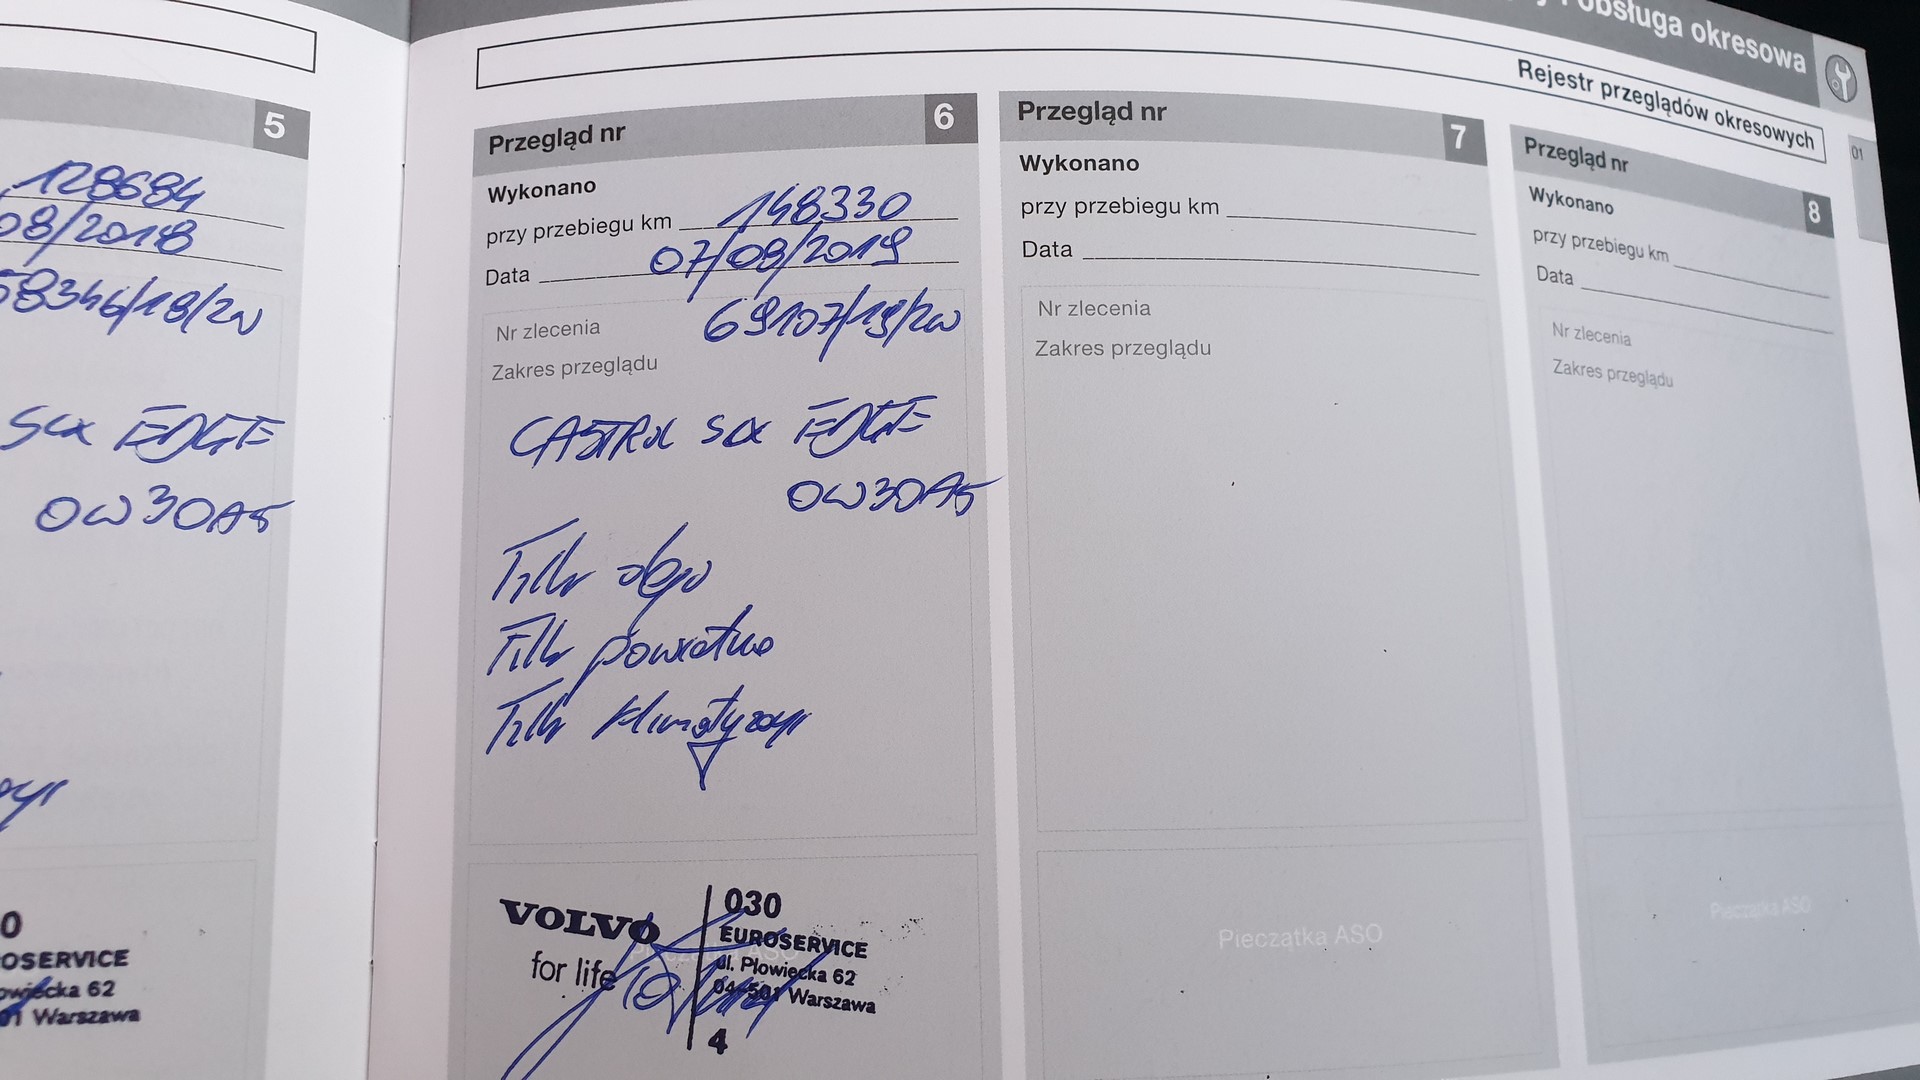 obsługa okresowa
Rejestr przeglądów okresowych
01
5
128684
08/2018
58346/18/2W
SLX EDGE
0W30A5
OSERVICE
owiecka 62
01 Warszawa
Przegląd nr 6
Wykonano
przy przebiegu km 148330
Data 07/08/2019
Nr zlecenia 69107/19/2W
Zakres przeglądu
CASTROL SLX EDGE
0W30A5
Filtr oleju
Filtr powietrza
Filtr klimatyzacji
VOLVO
for life
030
EUROSERVICE
ul. Płowiecka 62
04-501 Warszawa
4
Przegląd nr 7
Wykonano
przy przebiegu km
Data
Nr zlecenia
Zakres przeglądu
Pieczatka ASO
Przegląd nr 8
Wykonano
przy przebiegu km
Data
Nr zlecenia
Zakres przeglądu
Pieczatka ASO